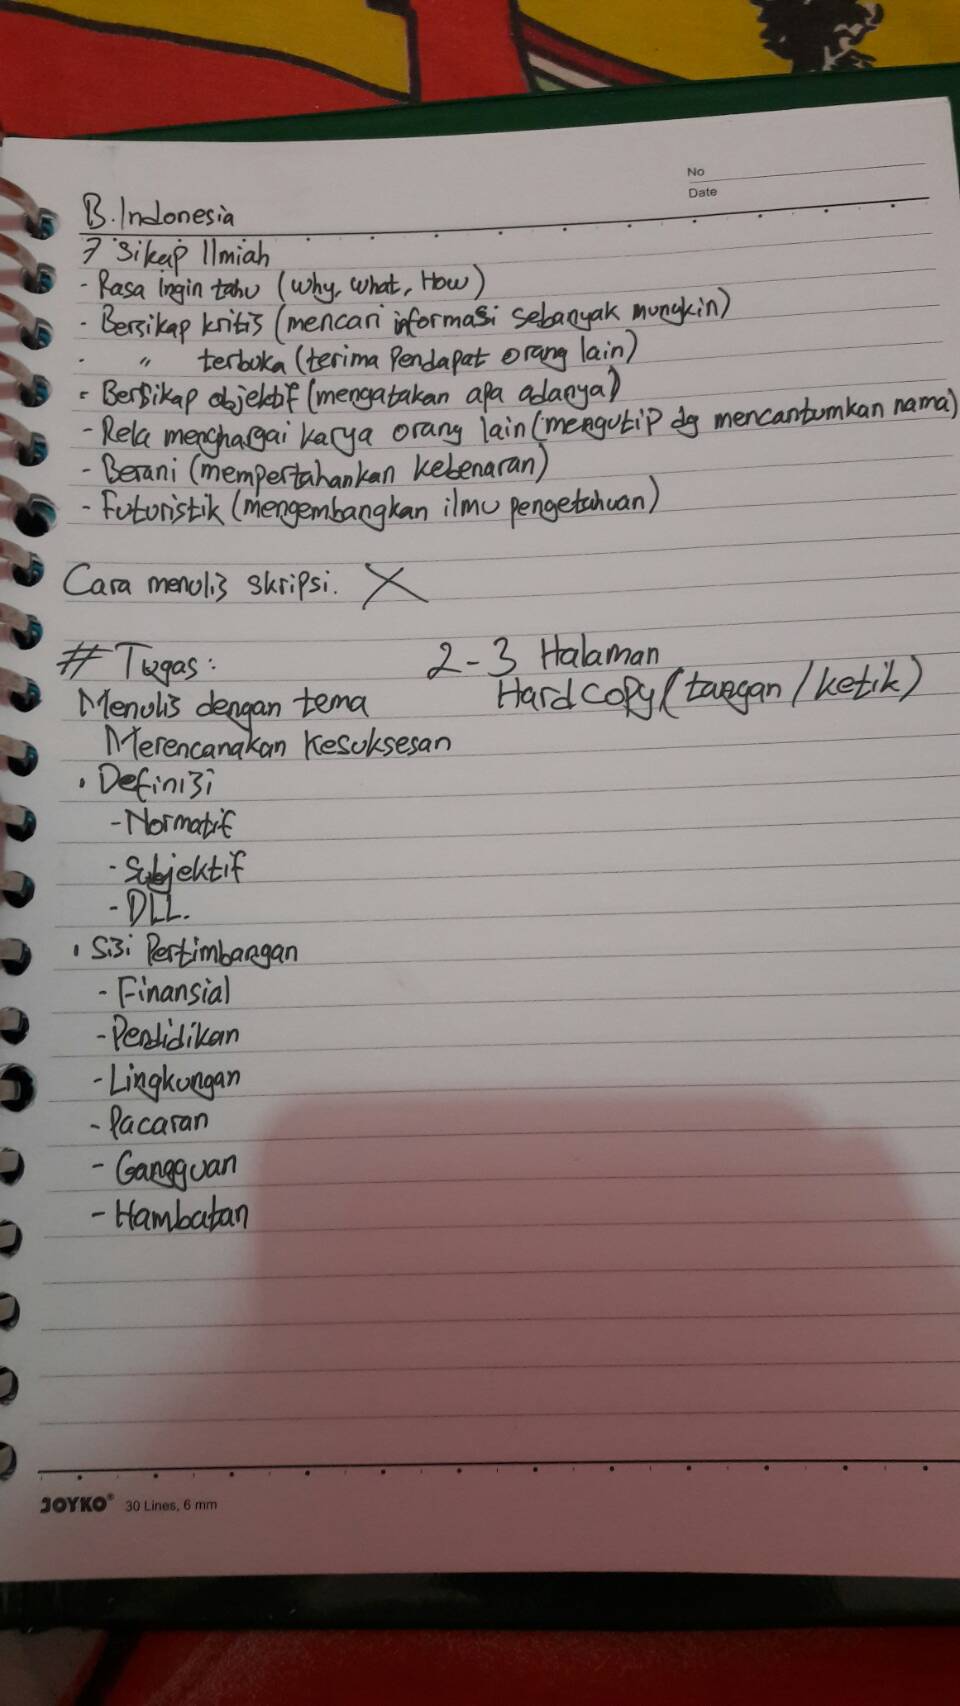 No
Date
B. Indonesia
7 Sikap Ilmiah
- Rasa ingin tahu (Why, What, How)
- Bersikap kritis (mencari informasi sebanyak mungkin)
- " terbuka (terima Pendapat orang lain)
- Bersikap objektif (mengatakan apa adanya)
- Rela menghargai karya orang lain (mengutip dg mencantumkan nama)
- Berani (mempertahankan kebenaran)
- Futuristik (mengembangkan ilmu pengetahuan)
Cara menulis skripsi. X
# Tugas: 2-3 Halaman
Menulis dengan tema Hardcopy (tangan / ketik)
Merencanakan Kesuksesan
• Definisi
- Normatif
- Subjektif
- DLL.
• Sisi Pertimbangan
- Finansial
- Pendidikan
- Lingkungan
- Pacaran
- Gangguan
- Hambatan
JOYKO® 30 Lines, 6 mm